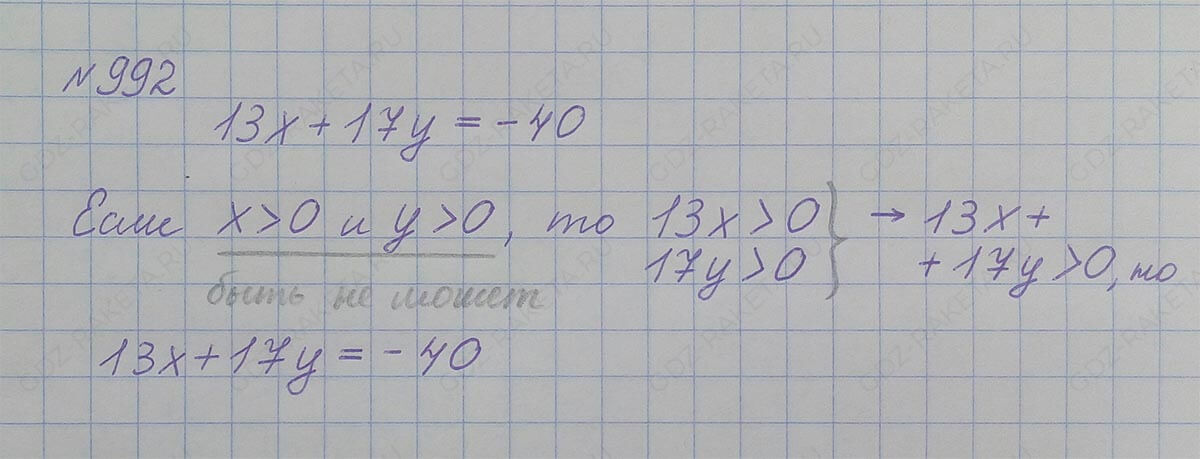 №992
13x + 17y = -40
Если x>0 и y>0, то 13x>0 } → 13x+
17y>0 + 17y>0, но
быть не может
13x+17y = -40